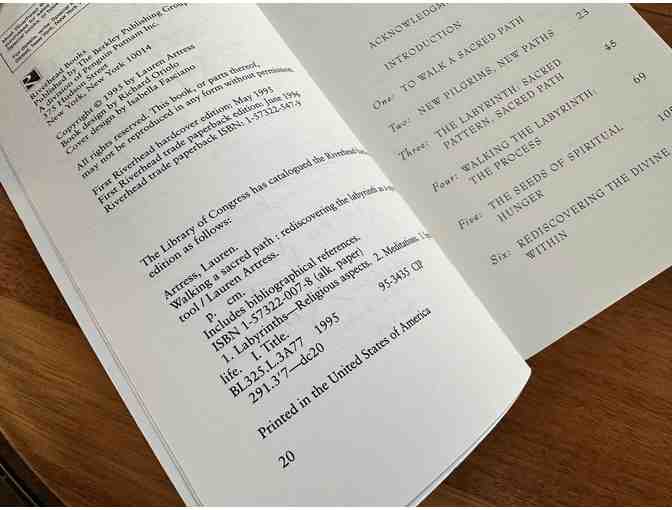 Riverhead Books
Published by The Berkley Publishing Group
A division of Penguin Putnam Inc.
Hudson Street
New York, New York 10014
Copyright © 1995 by Lauren Artress
Book design by Richard Oriolo
Cover design by Isabella Fasciano
All rights reserved. This book, or parts thereof,
may not be reproduced in any form without permission.
First Riverhead hardcover edition: May 1995
First Riverhead trade paperback edition: June 1996
Riverhead trade paperback ISBN: 1-57322-547-9
The Library of Congress has catalogued the Riverhead
edition as follows:
Artress, Lauren.
Walking a sacred path : rediscovering the labyrinth as a
tool / Lauren Artress.
p. cm.
Includes bibliographical references.
ISBN 1-57322-007-8 (alk. paper)
1. Labyrinths—Religious aspects. 2. Meditations.
life. I. Title.
BL325.L.3A77 1995 95-3435 CIP
291.3'7—dc20
Printed in the United States of America
20
ACKNOWLEDGM
INTRODUCTION
One: TO WALK A SACRED PATH 23
Two: NEW PILGRIMS, NEW PATHS
Three: THE LABYRINTH: SACRED 45
PATTERN, SACRED PATH
Four: WALKING THE LABYRINTH: 69
THE PROCESS
Five: THE SEEDS OF SPIRITUAL
HUNGER
Six: REDISCOVERING THE DIVINE
WITHIN